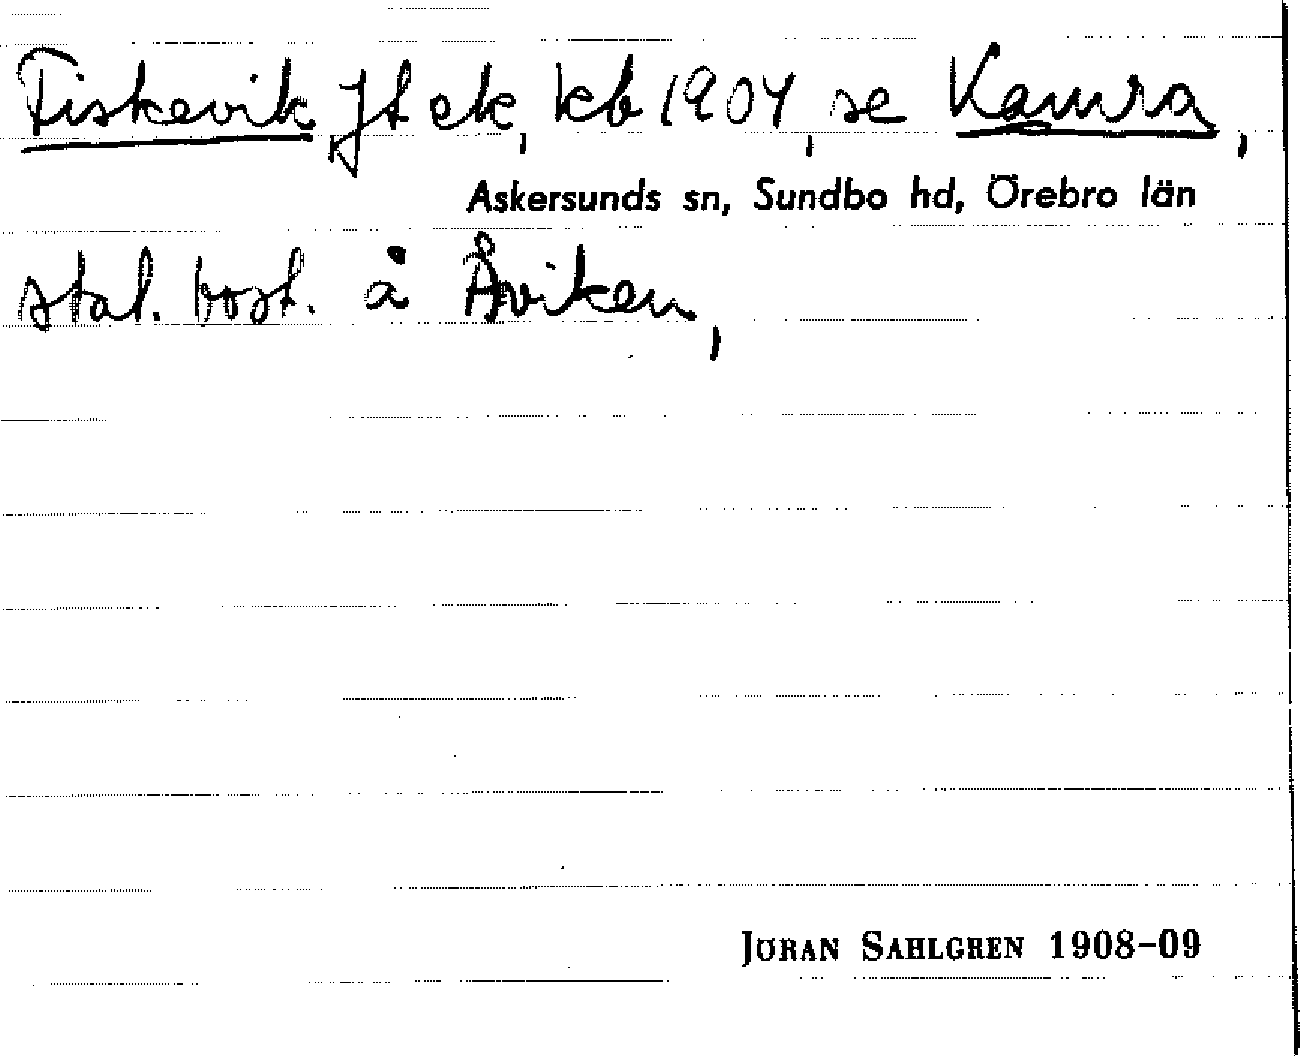 Fiskevik Jt ek, kb 1904, se Kamra,
Askersunds sn, Sundbo hd, Örebro län
stat. bost. å Åviken,
JÖRAN SAHLGREN 1908-09